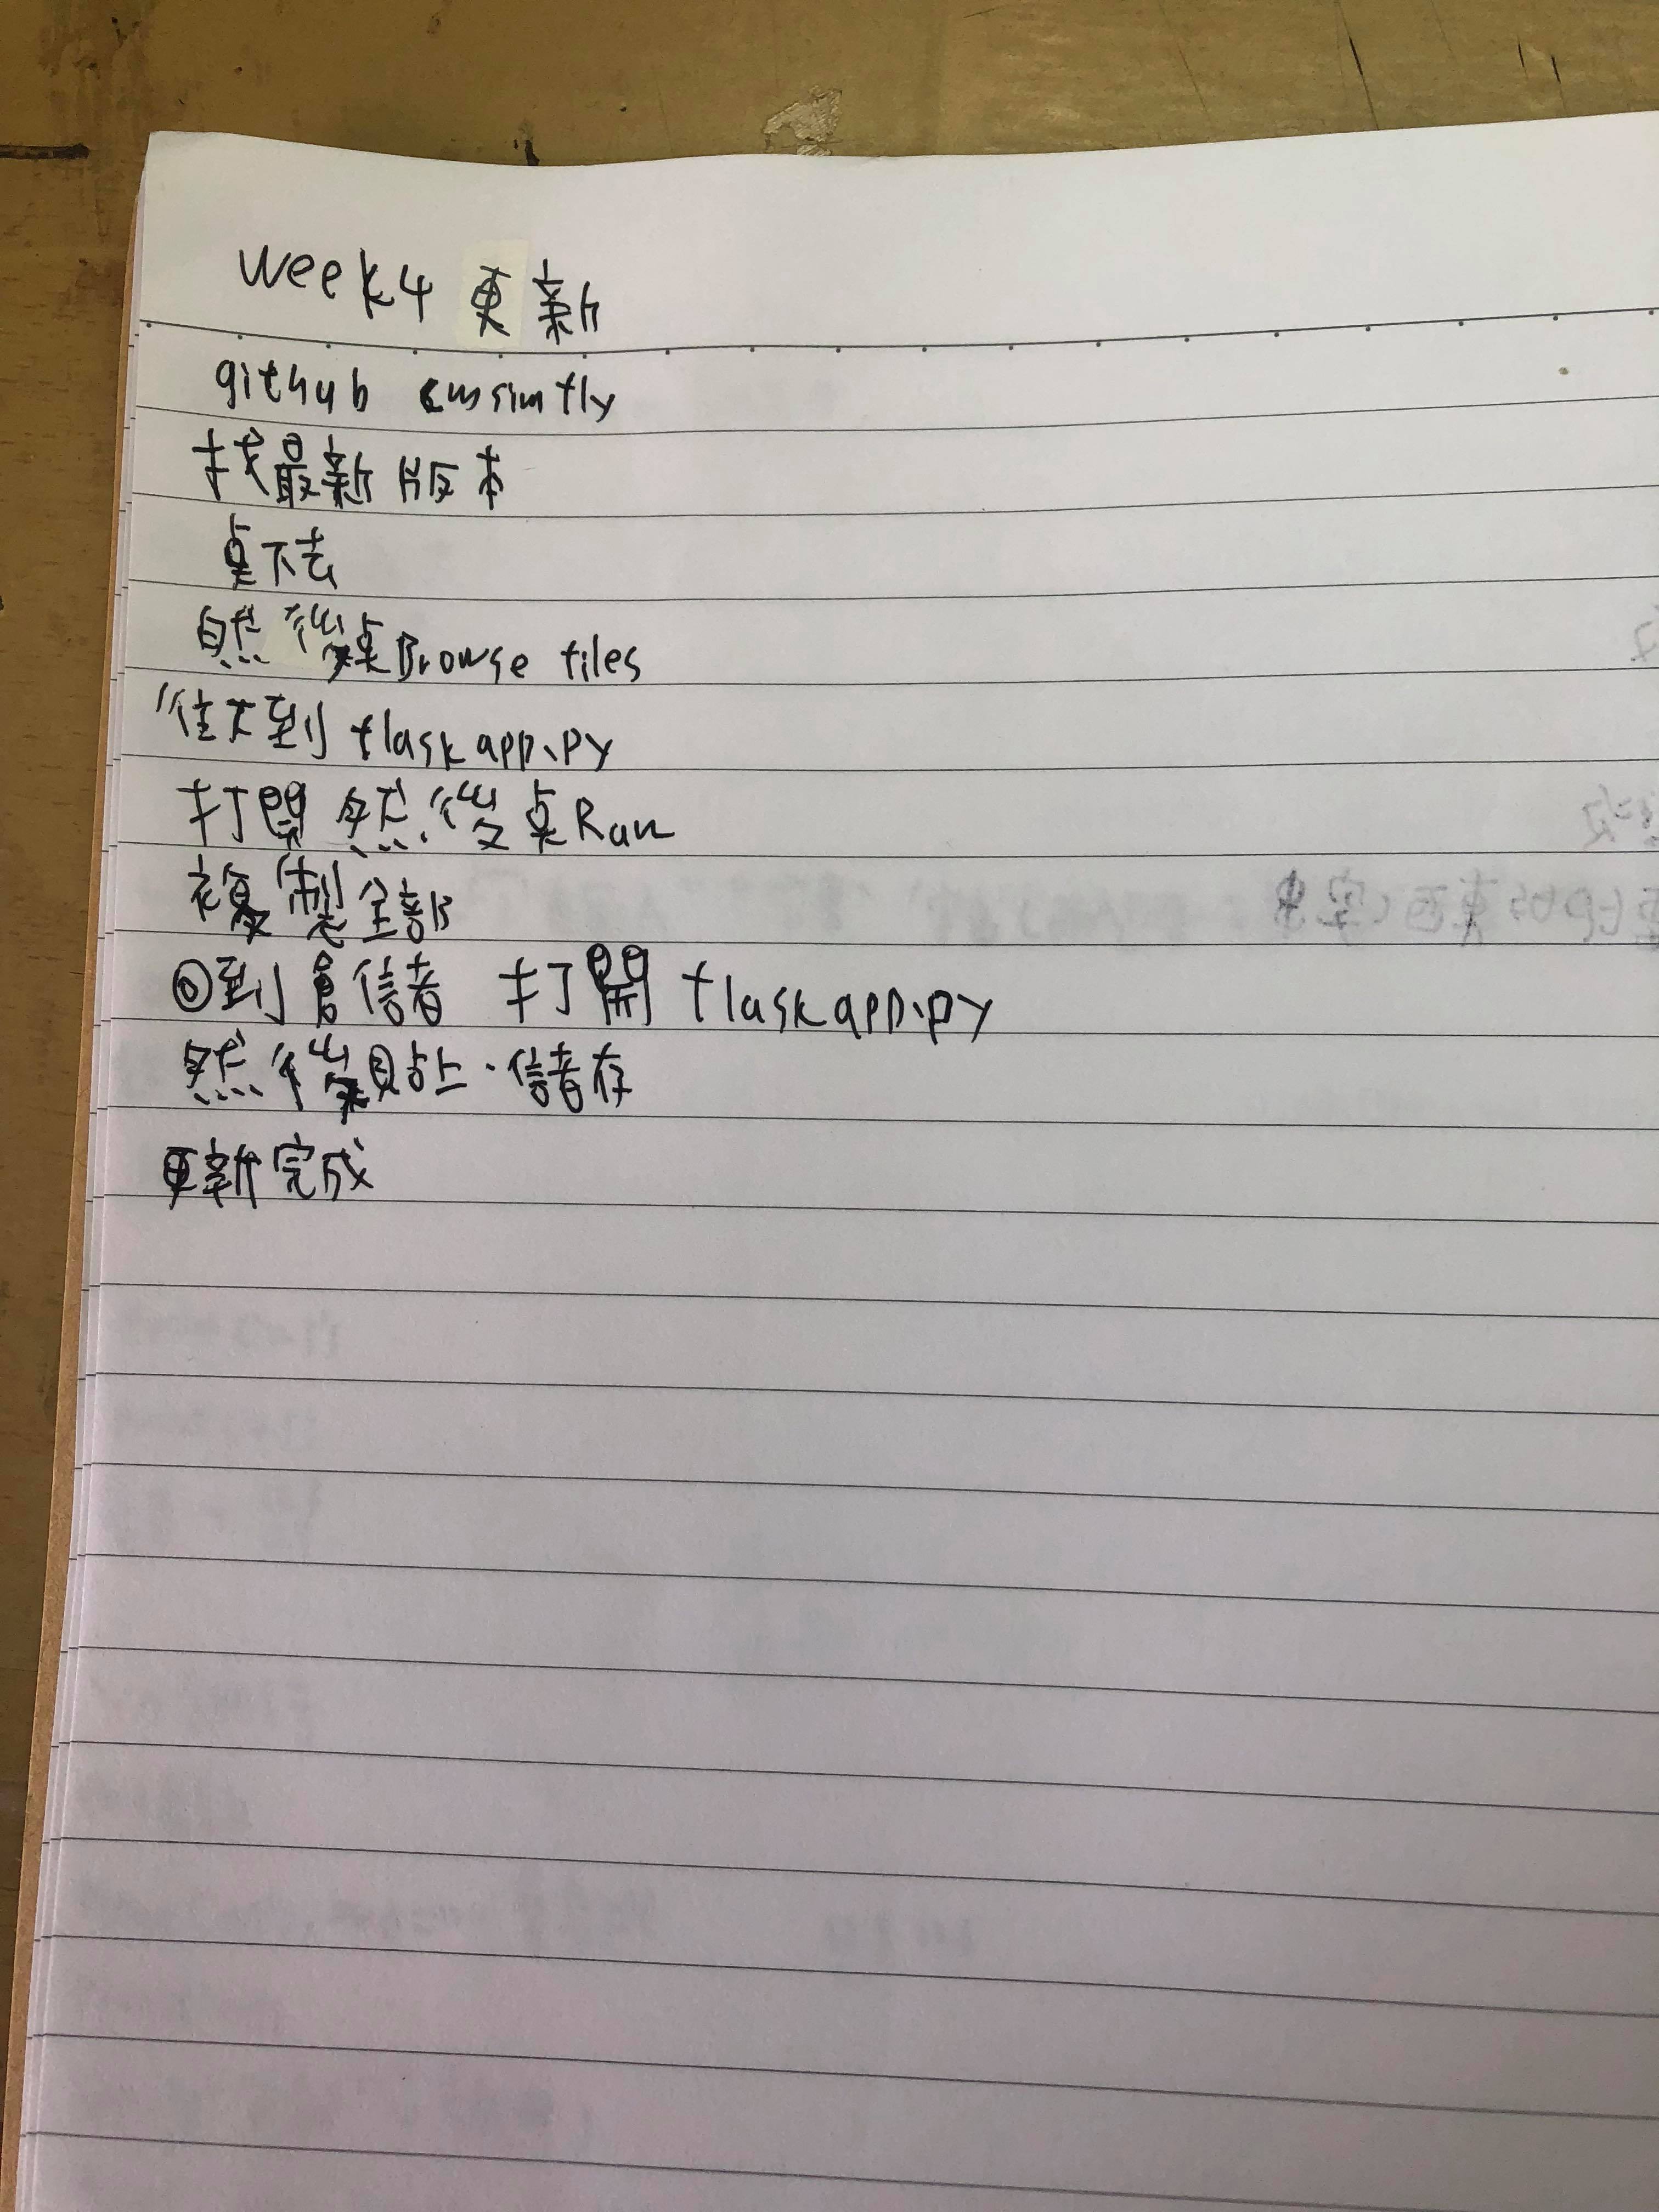 week4 更新
github
找最新版本
桌下去
自然後桌Browse files
往下到 flask app.py
打開 然後桌Raw
複製全部
回到倉儲 打開 flask app.py
然後貼上.儲存
更新完成